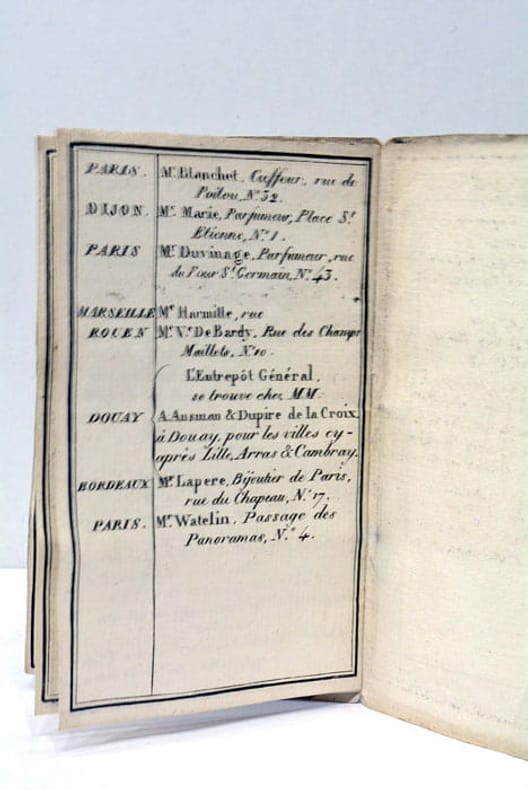 PARIS. Mr. Blanchet, Coffeur, rue de
Poitou, No. 32.
DIJON. Mr. Marie, Parfumeur, Place St.
Etienne, No. 1.
PARIS Mr. Duvinage, Parfumeur, rue
du Four St. Germain, No. 43.
MARSEILLE Me Harmille, rue
ROUEN Me. Ve. De Bardy, Rue des Champs
Maillets, No. 10.
L'Entrepôt Général,
se trouve chez MM.
DOUAY A. Ansman & Dupire de la Croix,
à Douay, pour les villes cy-
après Lille, Arras & Cambray.
BORDEAUX Mr. Lapere, Bijoutier de Paris,
rue du Chapeau, No. 17.
PARIS. Mr. Watelin, Passage des
Panoramas, N.o 4.